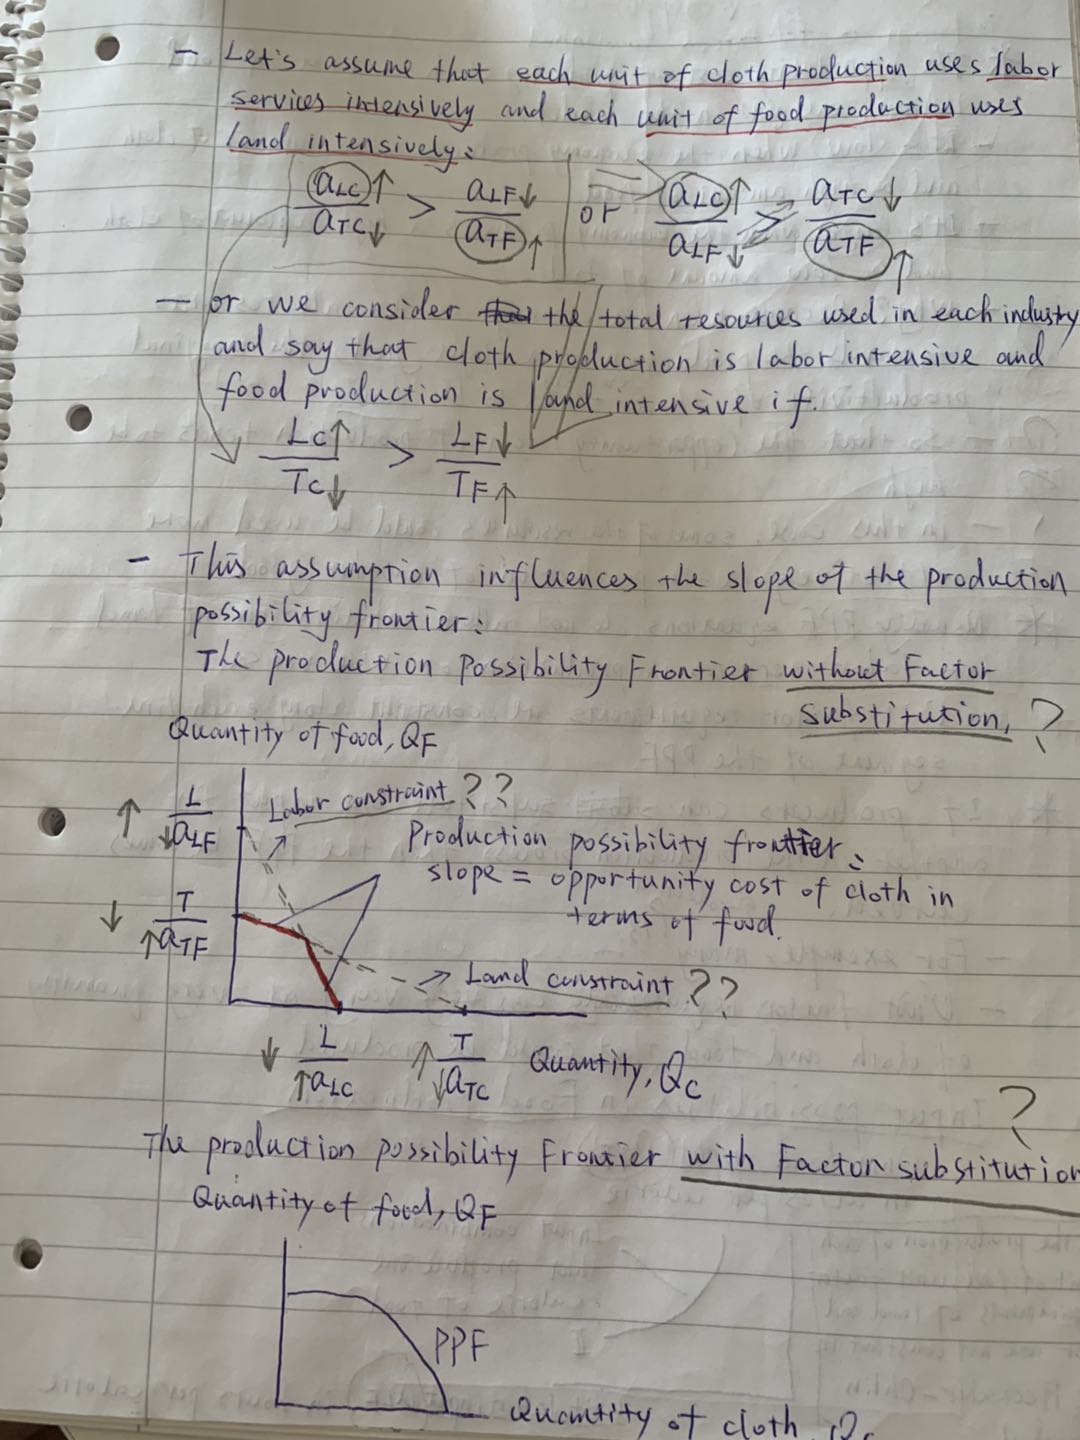 – Let's assume that each unit of cloth production uses labor
services intensively and each unit of food production uses
land intensively:
aLC↑ / aTC↓ > aLF↓ / aTF↑ or aLC↑ / aLF↓ > aTC↓ / aTF↑
– or we consider the total resources used in each industry
and say that cloth production is labor intensive and
food production is land intensive if.
LC↑ / TC↓ > LF↓ / TF↑
– This assumption influences the slope of the production
possibility frontier:
The production Possibility Frontier without Factor
substitution, ?
Quantity of food, QF
↑ L / ↓aLF
Labor constraint ??
Production possibility frontier:
slope = opportunity cost of cloth in
terms of food.
↓ T / ↑aTF
Land constraint ??
↓ L / ↑aLC
↑ T / ↓aTC
Quantity, QC
?
The production possibility Frontier with Factor substitution
Quantity of food, QF
PPF
Quantity of cloth